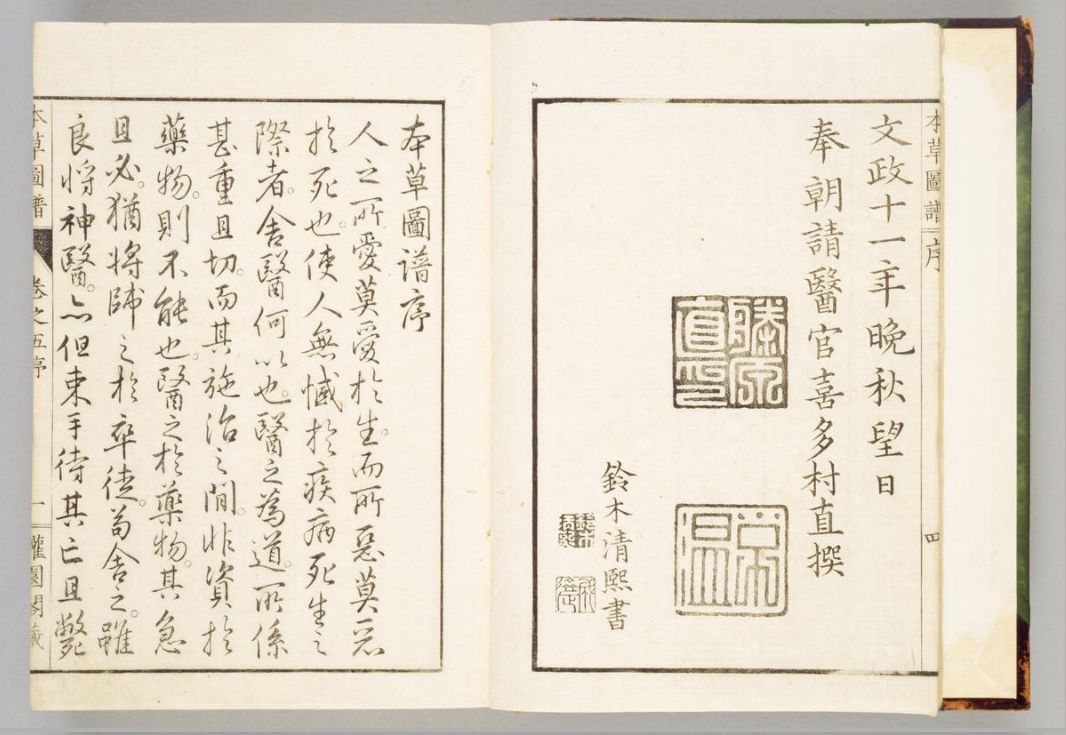 本草圖譜 序
文政十一年晩秋望日
奉朝請醫官喜多村直撰
鈴木清熙書
四
本草圖譜序
人之所愛莫愛於生。而所惡莫惡
於死也。使人無憾於疾病死生之
際者。舍醫何以也。醫之為道。所係
甚重且切。而其施治之間。非資於
藥物。則不能也。醫之於藥物。其急
且必。猶將帥之於卒徒。苟舍之。雖
良將神醫。亦但束手待其亡且斃
本草圖譜 卷之五序 一